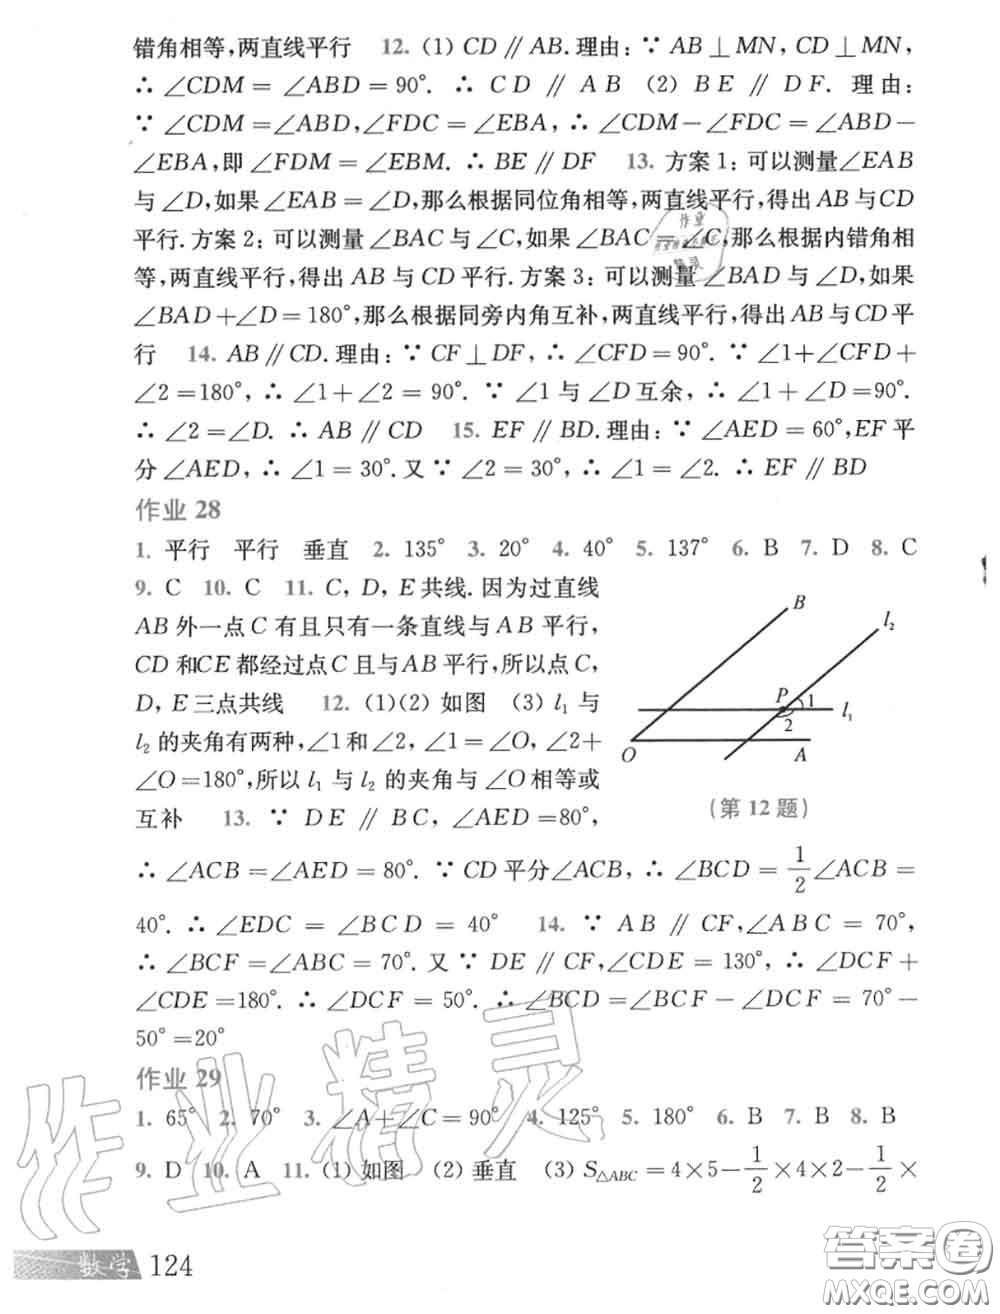 错角相等,两直线平行 12. (1) CD∥AB.理由:∵ AB⊥MN, CD⊥MN,
∴ ∠CDM=∠ABD=90°. ∴ CD∥AB (2) BE∥DF. 理由:
∵ ∠CDM=∠ABD,∠FDC=∠EBA, ∴ ∠CDM-∠FDC=∠ABD-
∠EBA,即∠FDM=∠EBM. ∴ BE∥DF 13. 方案1:可以测量∠EAB
与∠D,如果∠EAB=∠D,那么根据同位角相等,两直线平行,得出AB与CD
平行.方案2:可以测量∠BAC与∠C,如果∠BAC=∠C,那么根据内错角相
等,两直线平行,得出AB与CD平行.方案3:可以测量∠BAD与∠D,如果
∠BAD+∠D=180°,那么根据同旁内角互补,两直线平行,得出AB与CD平
行 14. AB∥CD.理由:∵ CF⊥DF, ∴ ∠CFD=90°. ∵ ∠1+∠CFD+
∠2=180°, ∴ ∠1+∠2=90°. ∵ ∠1与∠D互余, ∴ ∠1+∠D=90°.
∴ ∠2=∠D. ∴ AB∥CD 15. EF∥BD.理由:∵ ∠AED=60°,EF平
分∠AED, ∴ ∠1=30°.又∵ ∠2=30°, ∴ ∠1=∠2. ∴ EF∥BD
作业28
1. 平行 平行 垂直 2. 135° 3. 20° 4. 40° 5. 137° 6. B 7. D 8. C
9. C 10. C 11. C, D, E共线.因为过直线
AB外一点C有且只有一条直线与AB平行,
CD和CE都经过点C且与AB平行,所以点C,
D, E三点共线 12. (1)(2) 如图 (3) l₁与
l₂的夹角有两种,∠1和∠2,∠1=∠O,∠2+
∠O=180°,所以l₁与l₂的夹角与∠O相等或
互补 13. ∵ DE∥BC, ∠AED=80°,
B
l₂
P
1
2
l₁
O
A
(第12题)
∴ ∠ACB=∠AED=80°. ∵ CD平分∠ACB, ∴ ∠BCD=1/2∠ACB=
40°. ∴ ∠EDC=∠BCD=40° 14. ∵ AB∥CF,∠ABC=70°,
∴ ∠BCF=∠ABC=70°. 又∵ DE∥CF,∠CDE=130°, ∴ ∠DCF+
∠CDE=180°. ∴ ∠DCF=50°. ∴ ∠BCD=∠BCF-∠DCF=70°-
50°=20°
作业29
1. 65° 2. 70° 3. ∠A+∠C=90° 4. 125° 5. 180° 6. B 7. B 8. B
9. D 10. A 11. (1) 如图 (2) 垂直 (3) S△ABC=4×5-1/2×4×2-1/2×
数学 124
作业精灵
作业
精灵
答案卷
MXQE.COM